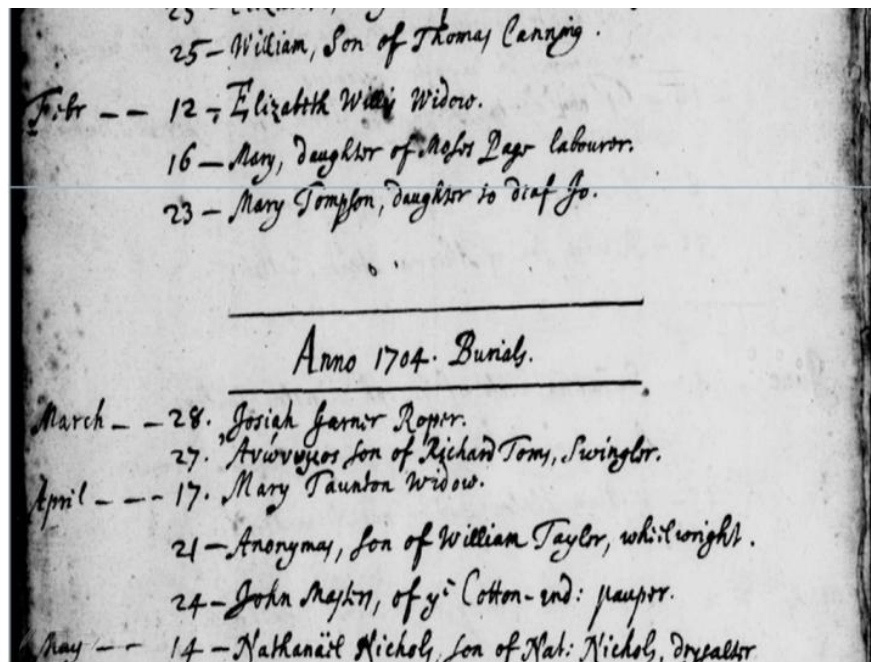 25 – William, Son of Thomas Canning.
Febr – – 12 – Elizabeth Willis Widow.
16 – Mary, daughter of Moses Page labourer.
23 – Mary Tompson, daughter to deaf Jo.
Anno 1704. Burials.
March – – 28. Josiah Garner Roper.
27. Ανώνυμος son of Richard Toms, Swingler.
April – – – 17. Mary Taunton Widow.
21 – Anonymus, son of William Taylor, wheelwright.
24 – John, of ye Cotton-end: pauper.
May – – 14 – Nathanäel Nichols, son of Nat: Nichols, drysalter